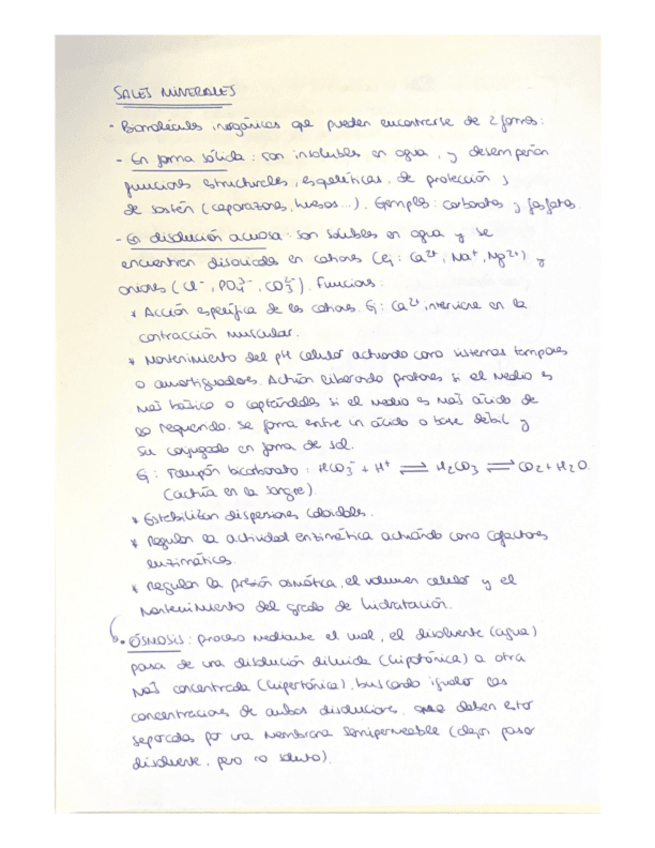 SALES MINERALES
· Biomoléculas inorgánicas que pueden encontrarse de 2 formas:
- En forma sólida: son insolubles en agua, y desempeñan
funciones estructurales, esqueléticas, de protección y
de sostén (caparazones, huesos...). Ejemplo: carbonatos y fosfatos.
- En disolución acuosa: son solubles en agua y se
encuentran disociadas en cationes (Ej: Ca²⁺, Na⁺, Mg²⁺) y
aniones (Cl⁻, PO₄³⁻, CO₃²⁻). Funciones:
* Acción específica de los cationes. Ej: Ca²⁺ interviene en la
contracción muscular.
* Mantenimiento del pH celular actuando como sistemas tampones
o amortiguadores. Actúan liberando protones si el medio es
más básico o captándolos si el medio es más ácido de
lo requerido. Se forma entre un ácido o base débil y
su conjugado en forma de sal.
Ej: Tampón bicarbonato: HCO₃⁻ + H⁺ ⇌ H₂CO₃ ⇌ CO₂ + H₂O.
(actúa en la sangre).
* Estabilizan dispersiones coloidales.
* Regulan la actividad enzimática actuando como cofactores
enzimáticos.
* Regulan la presión osmótica, el volumen celular y el
mantenimiento del grado de hidratación.
· ÓSMOSIS: proceso mediante el cual, el disolvente (agua)
pasa de una disolución diluida (hipotónica) a otra
más concentrada (hipertónica), buscando igualar las
concentraciones de ambas disoluciones, que deben estar
separadas por una membrana semipermeable (dejan pasar
disolvente, pero no soluto).